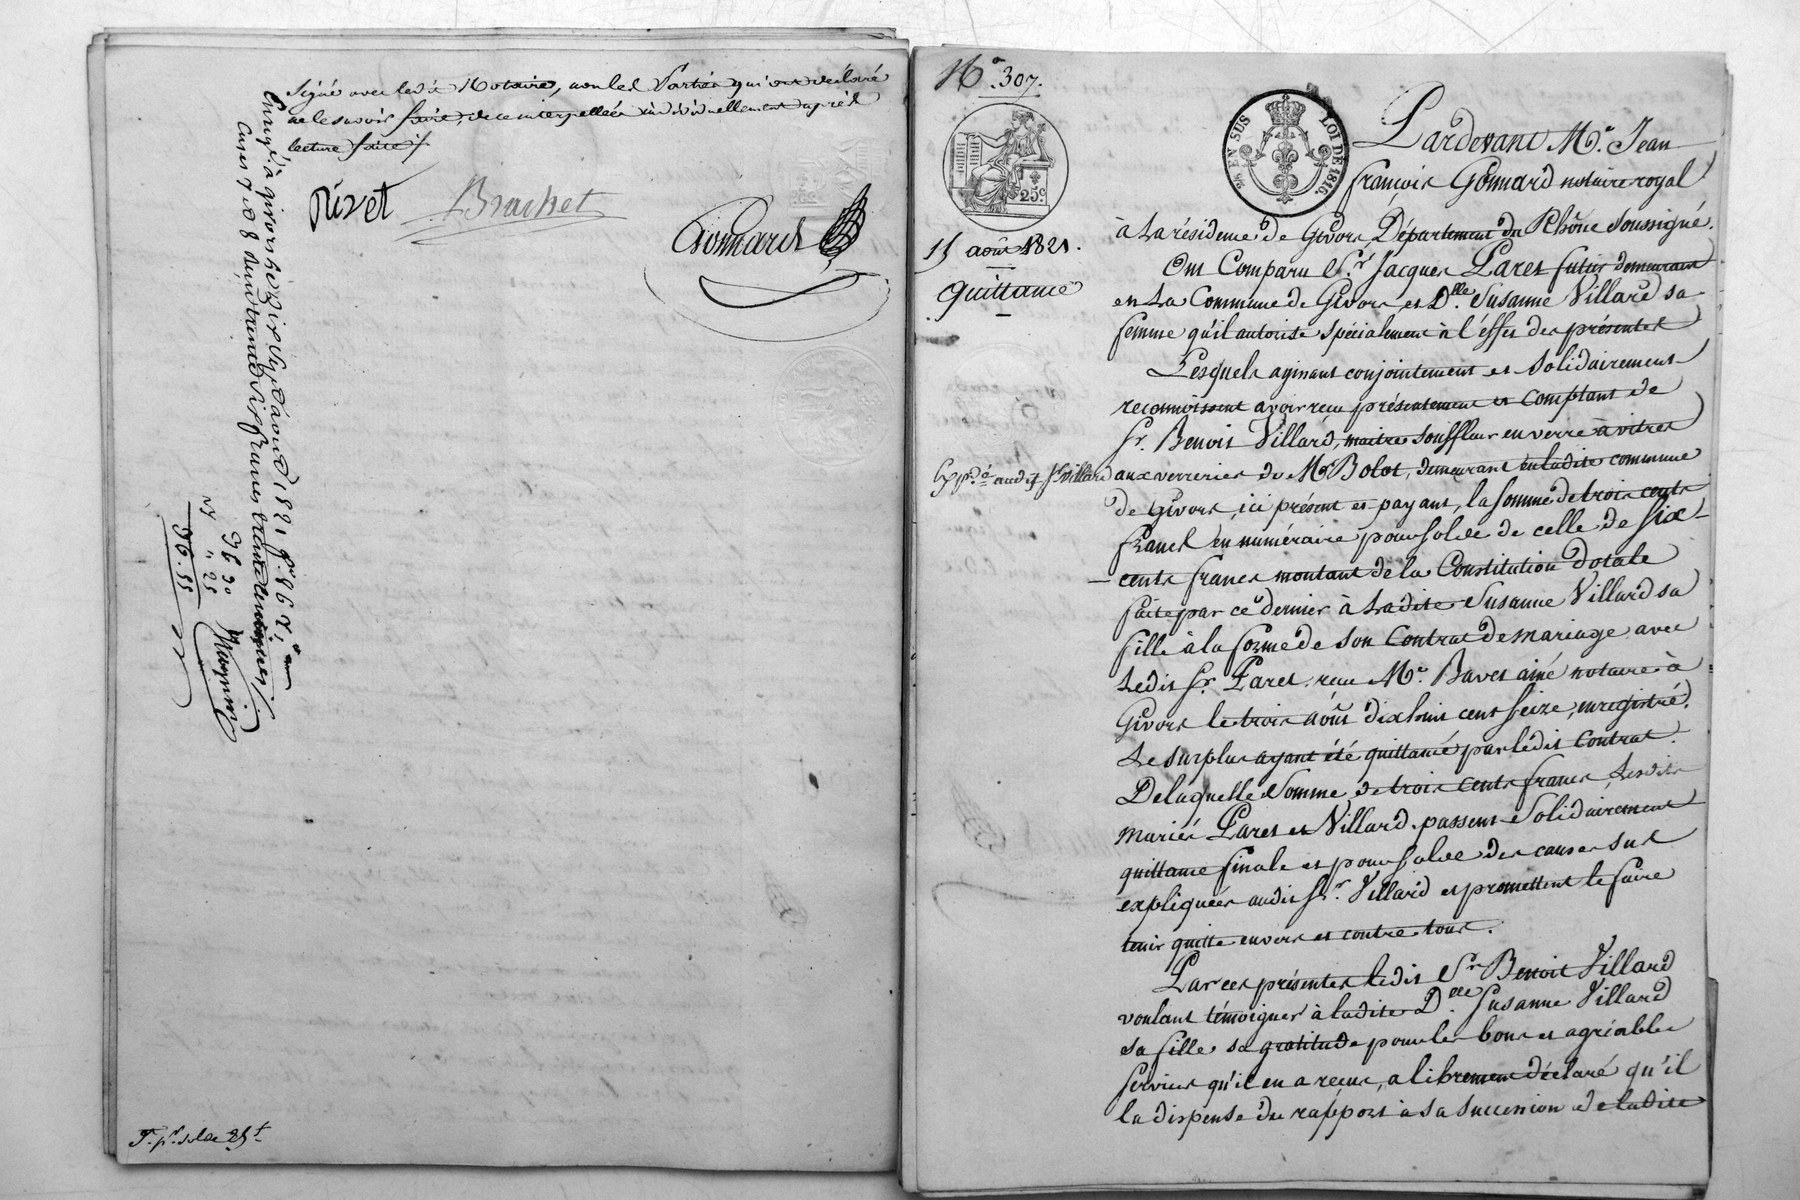 Signé avec ledit Notaire, non les Parties qui ont déclaré
ne le savoir faire, de ce interpellées individuellement après
lecture faite
Rivet Brachet
Gonnard
Enregé. à Givors le dix sept août 1821 fo. 86
Casés 7 et 8 deux francs
36 30
25
36. 55
N°. 307.
25c.
2/10 EN SUS LOI DE 1816.
15 août 1821.
Quittance
Pardevant Me. Jean
françois Gonnard notaire royal
à la résidence de Givors, Département du Rhône soussigné.
Ont Comparu Sr. Jacques Paret demeurant
en la Commune de Givors et Dlle. Susanne Villard sa
femme qu'il autorise spécialement à l'effet des présentes
Lesquels agissant conjointement et solidairement
reconnoissent avoir reçu présentement et comptant de
Sr. Benoit Villard, maitre souffleur en verre à vitres
Expé. audit Sr Villard
aux verreries de Mr Bolot, demeurant en ladite commune
de Givors, ici présent et payant, la somme de trois cents
francs en numéraire pour solde de celle de six
cents francs montant de la Constitution Dotale
faite par ce dernier à ladite Susanne Villard sa
fille à la forme de son Contrat de mariage avec
ledit Sr. Paret reçu Me. Bavet ainé notaire à
Givors le trois août dix huit cent seize, enregistré.
Le surplus ayant été quittancé par ledit Contrat.
De laquelle Somme de trois cents francs lesdits
mariés Paret et Villard passent solidairement
quittance finale et pour solde des causes sus
expliquées audit Sr. Villard et promettent le faire
tenir quitte envers et contre tous.
Par ces présentes ledit Sr Benoit Villard
voulant témoigner à ladite Dlle. Susanne Villard
sa fille sa gratitude pour les bons et agréables
services qu'il en a reçus, a librement déclaré qu'il
la dispense du rapport à sa succession de ladite